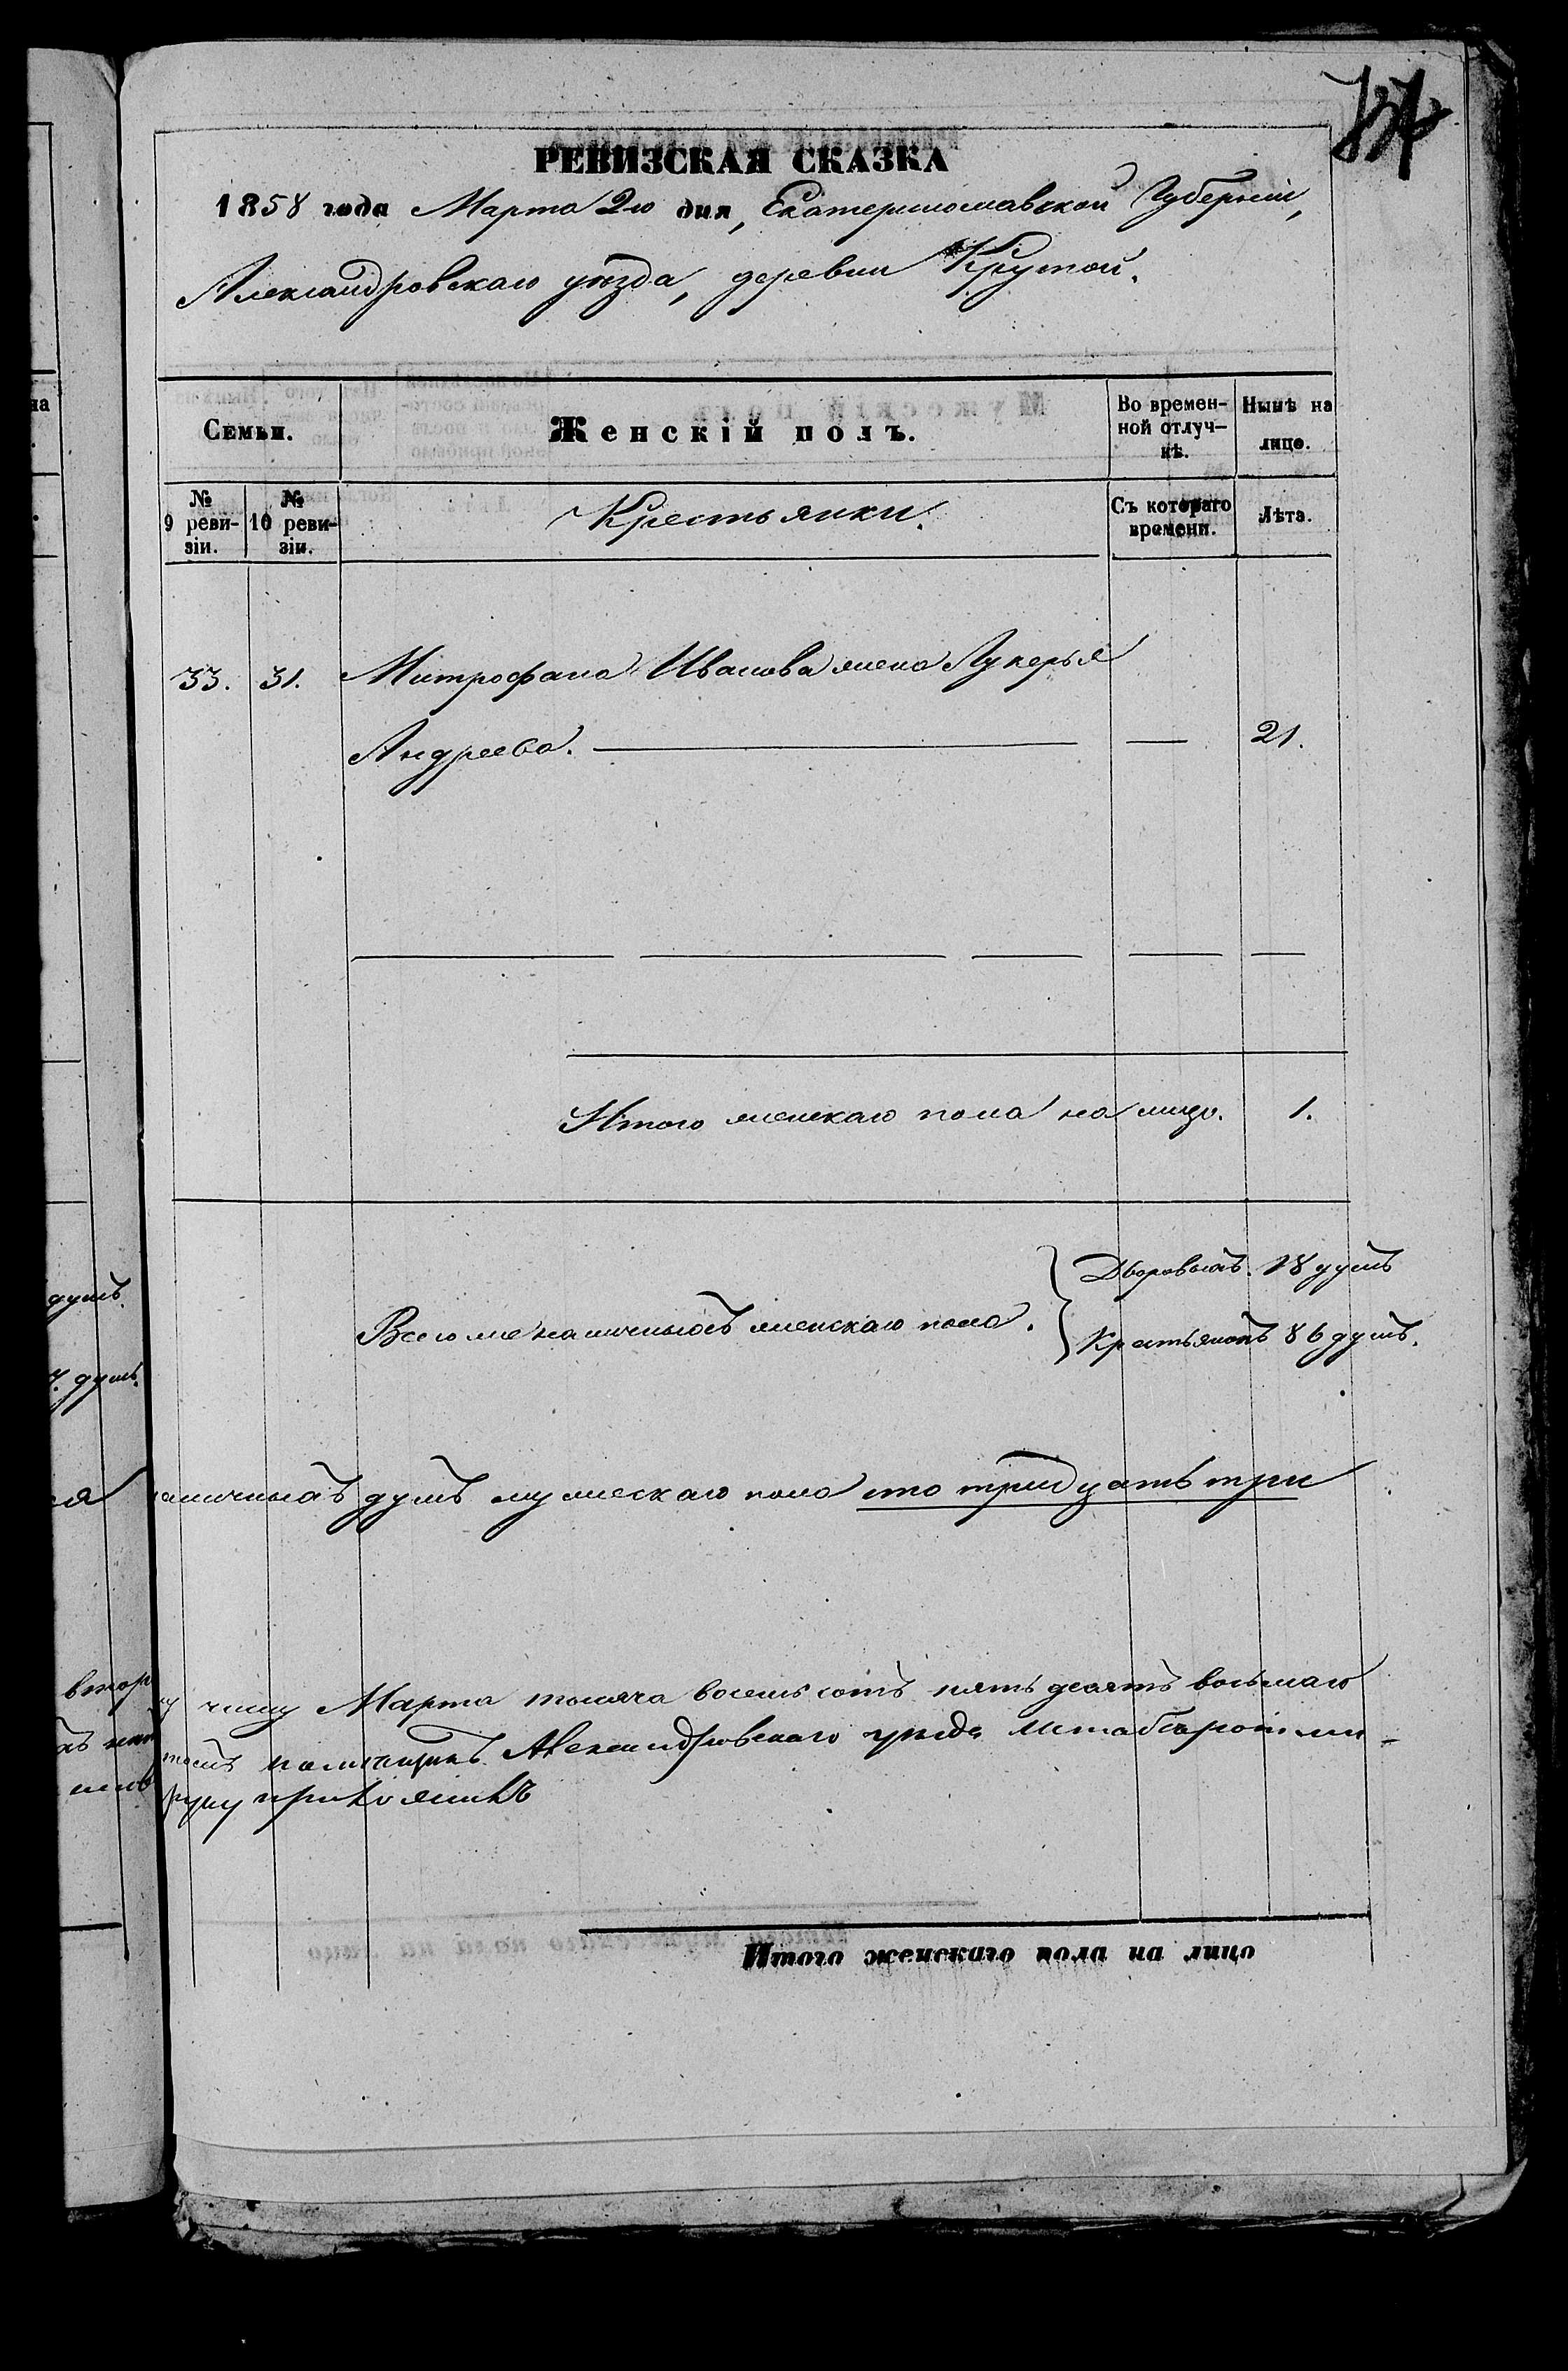 РЕВИЗСКАЯ СКАЗКА
1858 года Марта 2го дня, Екатеринославской Губерніи,
Александровскаго уѣзда, деревни Крутой.
Семьи.
Женскій полъ.
Во времен-
ной отлуч-
кѣ.
Нынѣ на
лицо.
№
9 реви-
зіи.
№
10 реви-
зіи.
Крестьянки.
Съ котораго
времени.
Лѣта.
33. 31. Митрофана Иванова жена Лукерья
Андреева. — — 21.
Итого женскаго пола на лицо. 1.
Дворовыхъ 18 душъ
Всего же наличныхъ женскаго пола.
Крестьянокъ 86 душъ.
душъ.
душъ.
наличныхъ душъ мужескаго пола сто тридцать три
втор
числу Марта тысяча восемь сотъ пять десятъ восьмаго
помѣщикъ Александровскаго уѣзда
руку приложилъ
Итого женскаго пола на лицо